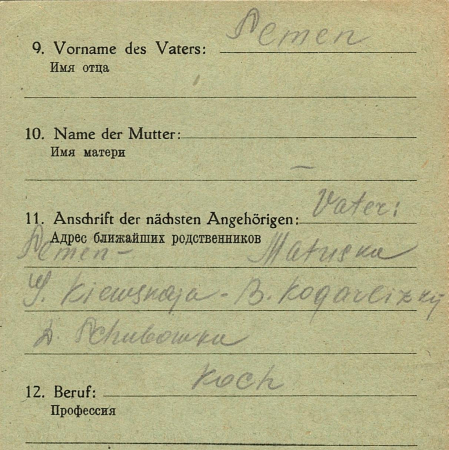 9. Vorname des Vaters: Pemen
Имя отца
10. Name der Mutter: —
Имя матери
11. Anschrift der nächsten Angehörigen: Vater:
Адрес ближайших родственников
Pemen - Matuska
Kiewskaja - B. Kogarlizkij
12. Beruf: Koch
Профессия